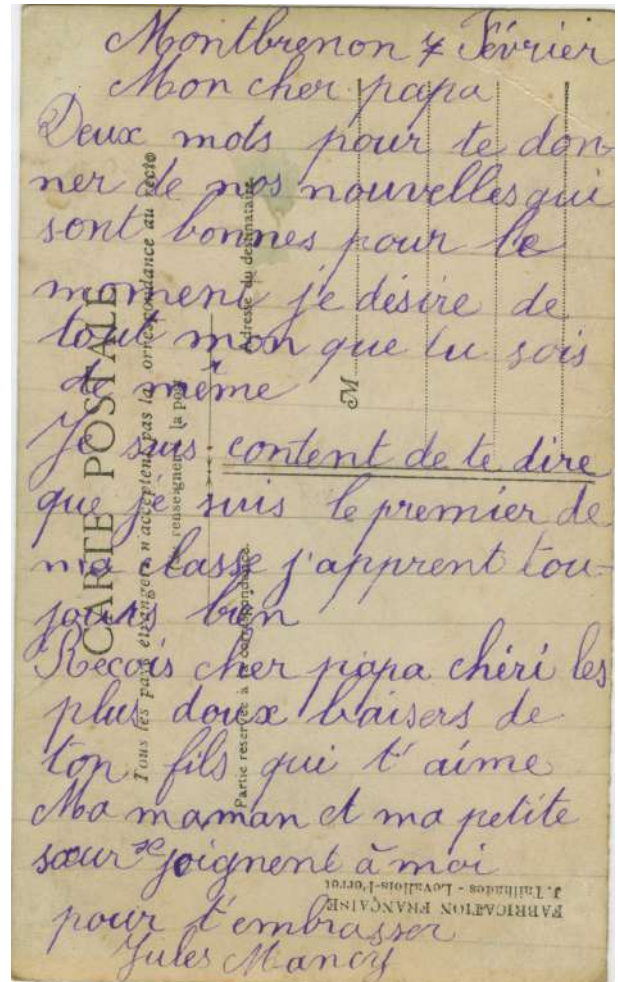 Montbrenon 7 Février
Mon cher papa
Deux mots pour te don-
ner de nos nouvelles qui
sont bonnes pour le
moment je désire de
tout mon que tu sois
de même
Je suis content de te dire
que je suis le premier de
ma classe j'apprent tou-
jours bien
Recois cher papa chéri les
plus doux baisers de
ton fils qui t'aime
Ma maman et ma petite
sœur se joignent à moi
pour t'embrasser
Jules Mancy
CARTE POSTALE
Tous les pays étrangers n'acceptent pas la correspondance au recto
renseignent à la poste
Partie reservée à la correspondance.
Adresse du destinataire.
M
FABRICATION FRANÇAISE
J. Tailhades - Levallois-Perret